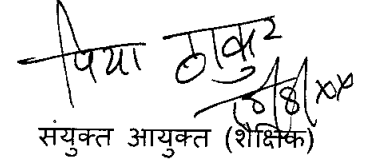 पिया ठाकुर
8/8/xx
संयुक्त आयुक्त (शैक्षिक)